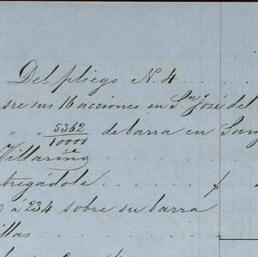 Del pliego N. 4 . . .
sre sus 16 acciones en Sn. José del
" " 5362/10000 de barra en San
Villarino . . . . .
tregádole . . . . . . . . /
á 234 sobre su barra
illas . . . . . . . . . .